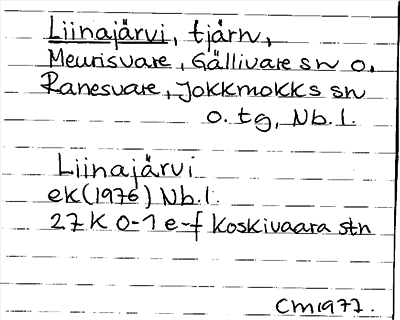 Liinajärvi, tjärn,
Meurisvare, Gällivare sn o.
Ranesvare, Jokkmokks sn
o. tg, Nb. l.
Liinajärvi
ek (1976) Nb. l.
27K 0-1 e-f Koskivaara stn
CM1977.